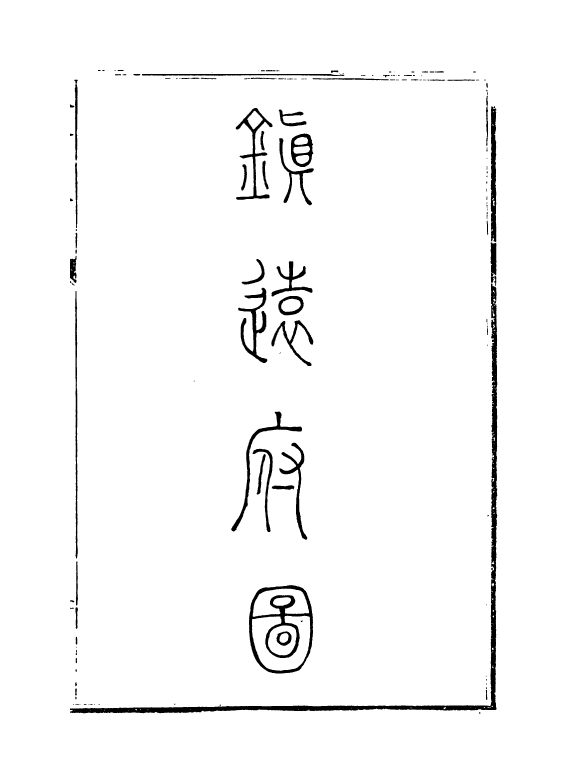 鎮遠府圖